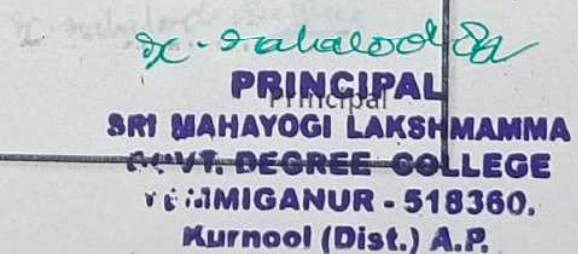 PRINCIPAL
Principal
SRI MAHAYOGI LAKSHMAMMA
GOVT. DEGREE COLLEGE
YEMMIGANUR - 518360.
Kurnool (Dist.) A.P.